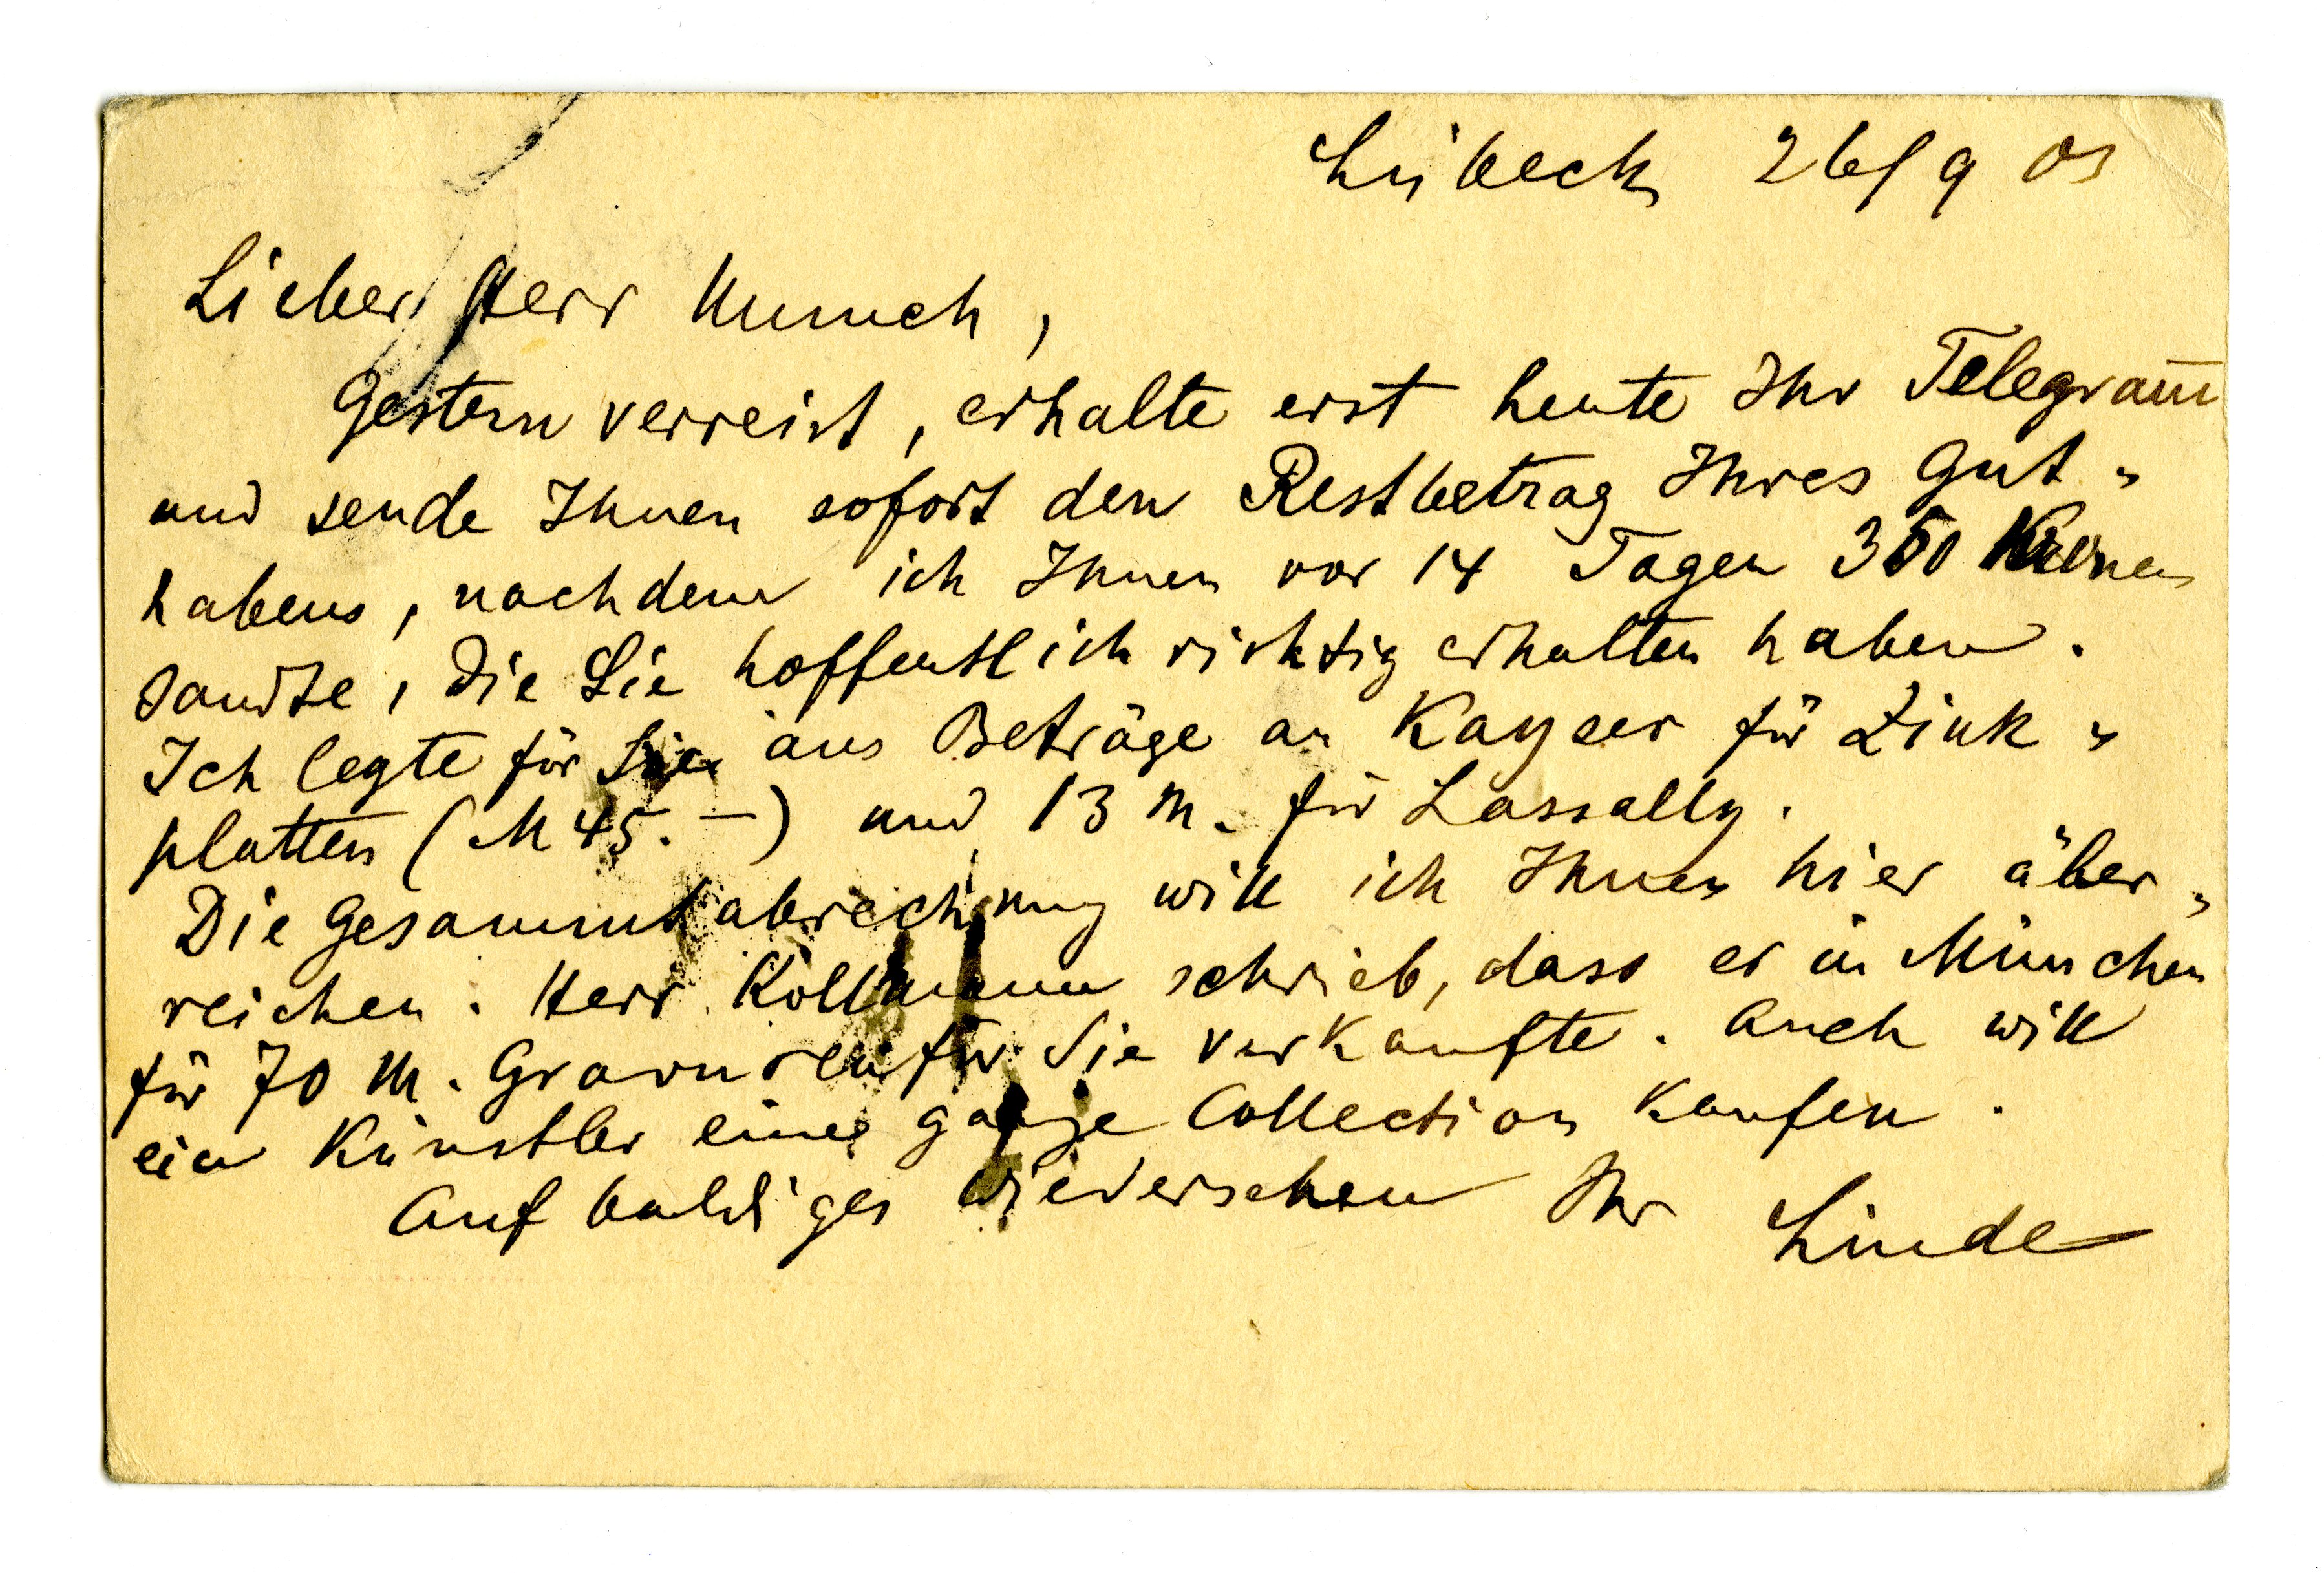 Lübeck 26/9 03
Lieber Herr Munch,
Gestern verreist, erhalte erst heute Ihr Telegram̅
und sende Ihnen sofort den Restbetrag Ihres Gut-
habens, nachdem ich Ihnen vor 14 Tagen 350 Kronen
sandte, die Sie hoffentlich richtig erhalten haben.
Ich legte für Sie aus Beträge an Kayser für Zink-
platten (M 45.–) und 13 M. für Lassally.
Die Gesammtabrechnung will ich Ihnen hier über-
reichen. Herr Kollmann schrieb, dass er in München
für 70 M. Gravuren für Sie verkaufte. Auch will
ein Künstler eine ganze Collection kaufen.
Auf baldiges Wiedersehen Ihr Linde